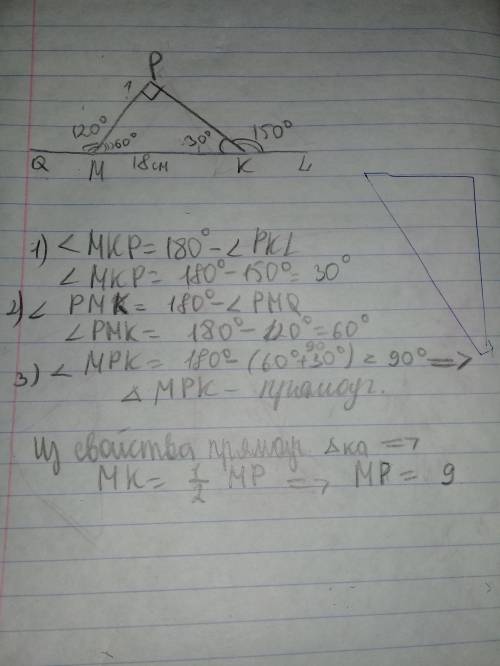 P
?
120° 60° 30° 150°
Q M 18 см K L
1) ∠ MKP = 180° - ∠ PKL
∠ MKP = 180° - 150° = 30°
2) ∠ PMK = 180° - ∠ PMQ
∠ PMK = 180° - 120° = 60°
90
3) ∠ MPK = 180° - (60° + 30°) = 90° =>
△ MPK - прямоуг.
Из свойства прямоуг. △ка =>
MK = 1/2 MP => MP = 9